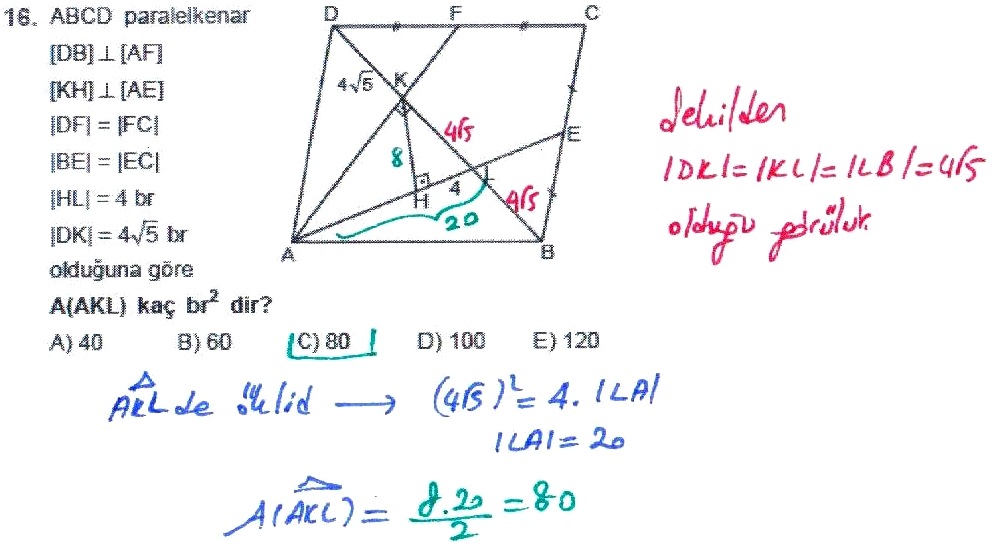 16. ABCD paralelkenar
[DB] ⊥ [AF]
[KH] ⊥ [AE]
|DF| = |FC|
|BE| = |EC|
|HL| = 4 br
|DK| = 4√5 br
olduğuna göre
A(AKL) kaç br² dir?
A) 40 B) 60 C) 80 D) 100 E) 120
D F C
4√5 K
4√5
E
8
H 4 L
4√5
20
A B
Şekilden
|DK|=|KL|=|LB|=4√5
olduğu görülür.
AKL de öklid → (4√5)² = 4. |LA|
|LA| = 20
A(AKL) = 8.20/2 = 80